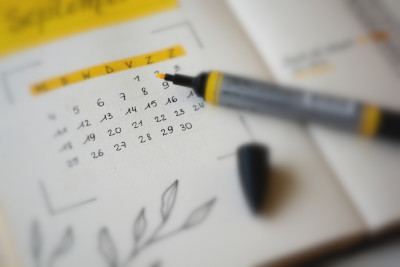 September
M D W D V Z Z
1 2 3
4 5 6 7 8 9
11 12 13 14 15 16
18 19 20 21 22 23 24
25 26 27 28 29 30